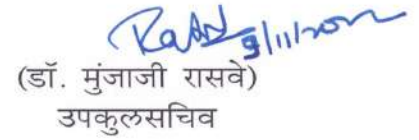 9/11/2022
(डॉ. मुंजाजी रासवे)
उपकुलसचिव